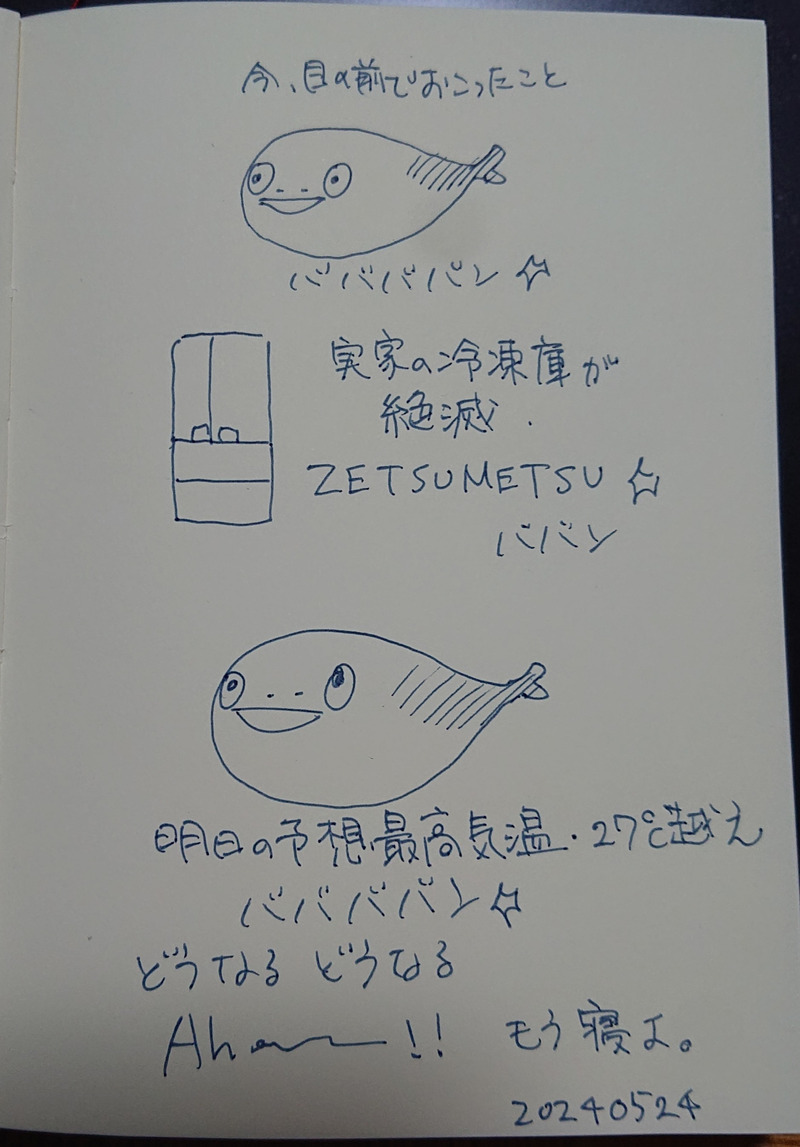 今、目の前でおこったこと
ババババン☆
実家の冷凍庫が
絶滅.
ZETSUMETSU☆
ババン
明日の予想最高気温・27℃越え
ババババン☆
どうなる どうなる
Aha〜!! もう寝よ。
20240524